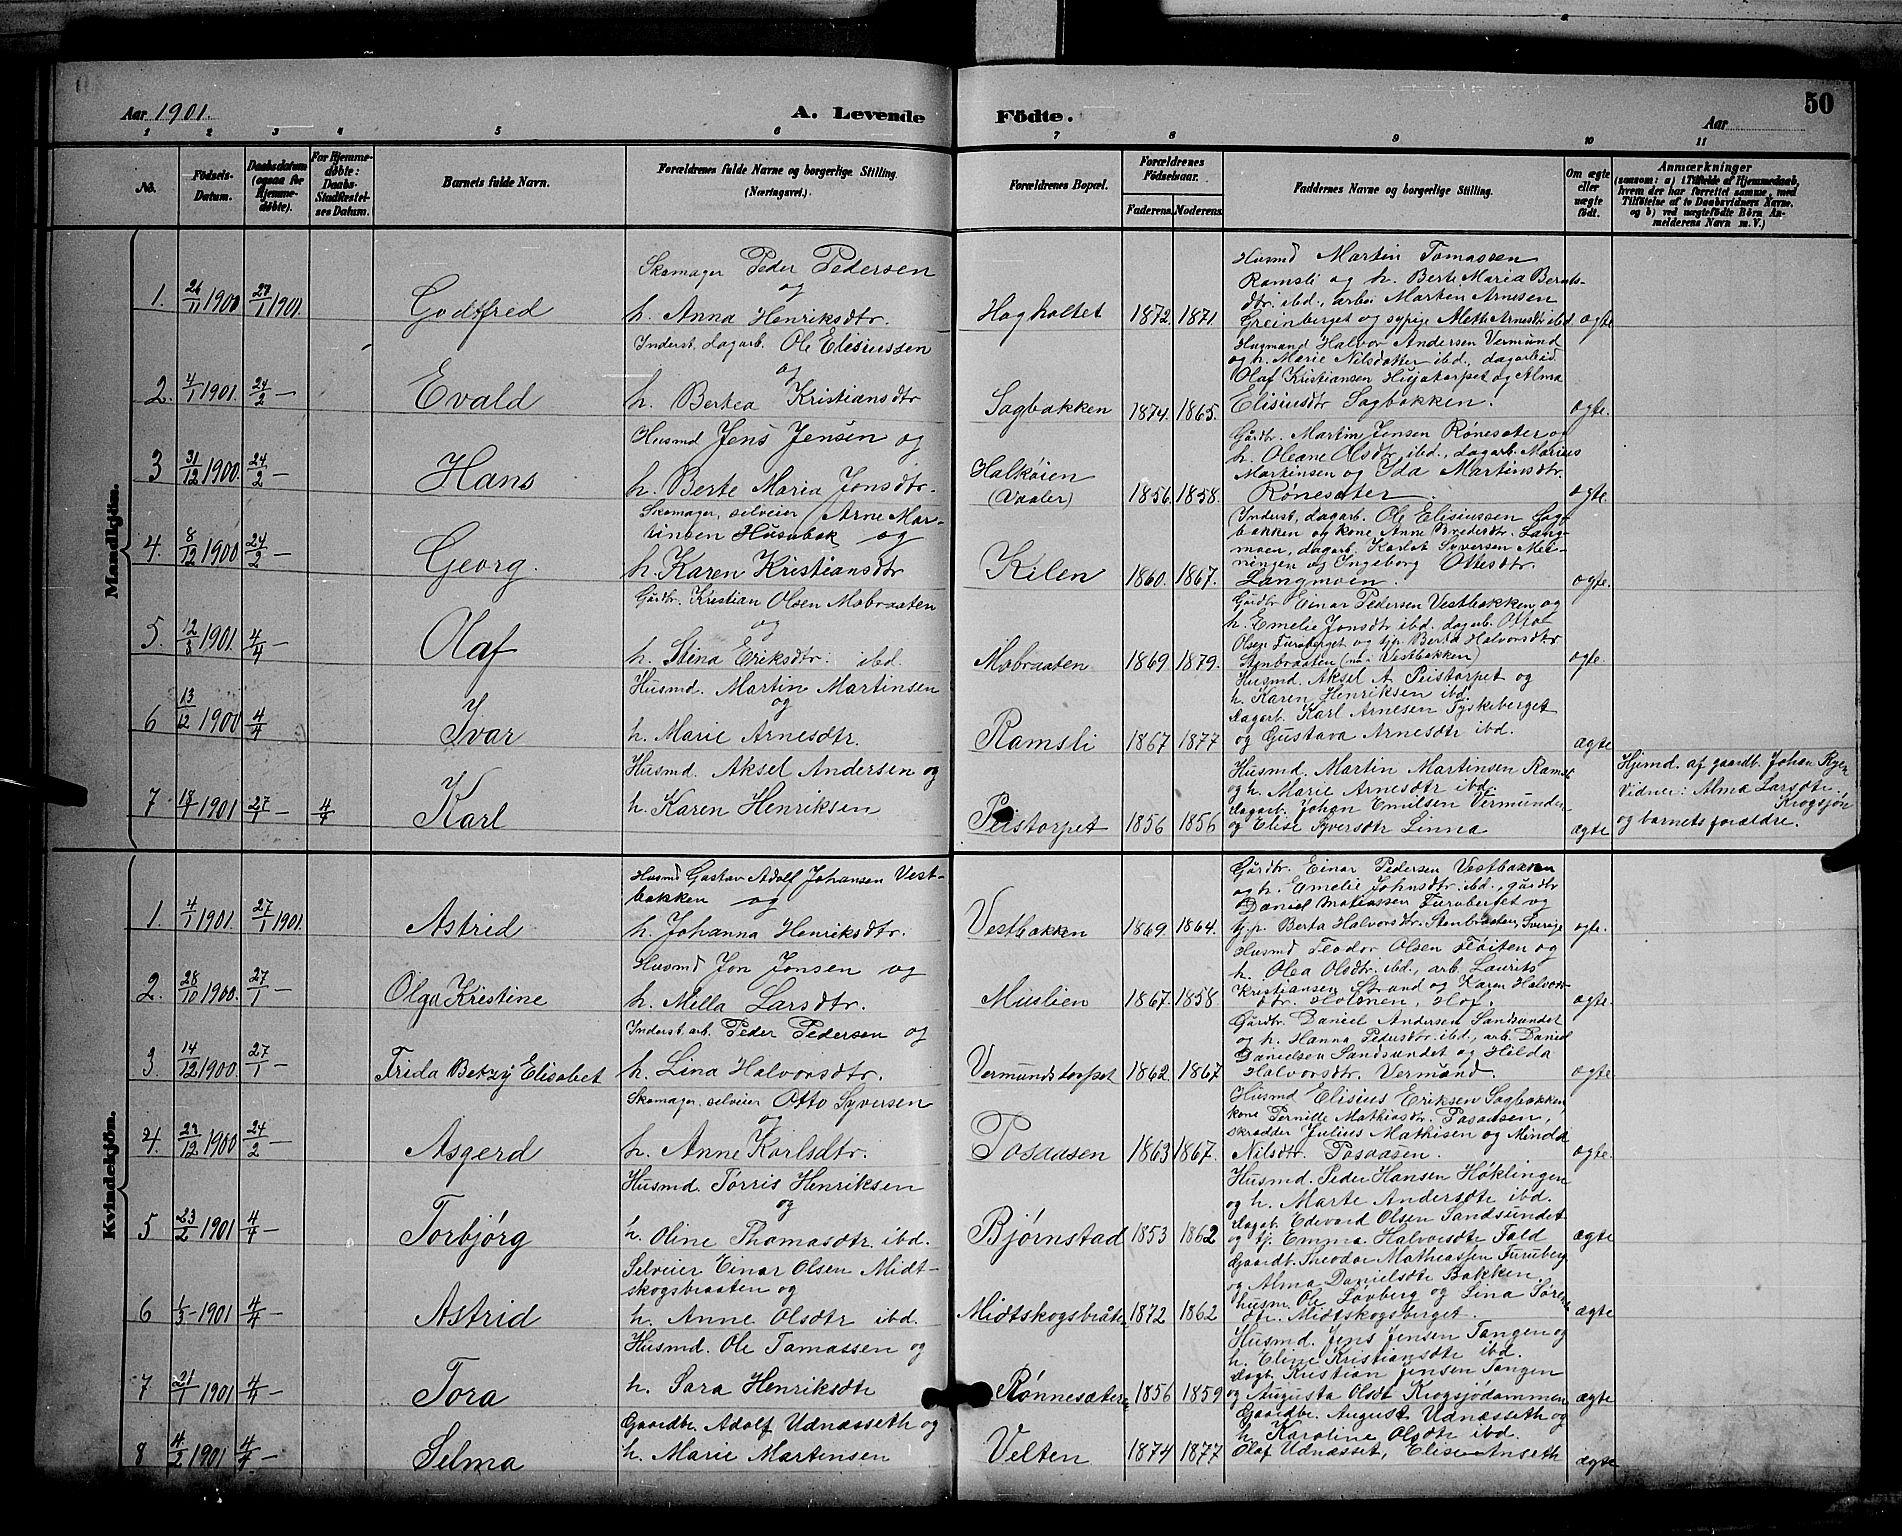 50
Aar 1901.
A. Levende
Födte.
Aar
1 2 3 4 5 6 7 8 9 10 11
No.
Födsels-
Datum.
Daabsdatum
(ogsaa for
Hjemme-
døbte).
For Hjemme-
døbte:
Daabs-
Stadfæstel-
ses Datum.
Barnets fulde Navn.
Forældrenes fulde Navne og borgerlige Stilling.
(Næringsvei.)
Forældrenes Bopæl.
Forældrenes
Födselsaar.
Faderens. Moderens.
Faddernes Navne og borgerlige Stilling.
Om ægte
eller
uægte
født.
Anmærkninger
(saasom: a) i Tilfælde af Hjemmedaab,
hvem der har forrettet samme, med
Tilföielse af to Daabsvidners Navne.
og b) ved uægtefödte Börn An-
melderens Navn m. V.)
Mandkjön.
1. 26/11 1900 27/1 1901.
Godtfred
Skomager Peder Pedersen
og
h. Anna Henriksdtr.
Hagholtet
1872. 1871.
Husmd Martin Tomassen
Ramsli og h. Berte Maria Bernts-
dtr. ibd., arbei Marten Arnesen
Greinberget og sypige Mette Arnesdtr ibd
ægte
2. 4/1 1901. 24/2 —
Evald
Inderst. dagarb. Ole Elisiussen
og
h. Bertea Kristiansdtr
Sagbakken
1874. 1865.
Husmand Halvor Andersen Vermund
og h. Marie Nilsdatter ibd. dagarbeid
Olaf Kristiansen Husjatorpet og Alma
Elisiusdtr Sagbakken.
ægte.
3 31/12 1900. 24/2 —
Hans
Husmd Jens Jensen og
h. Berte Maria Jonsdtr.
Halkøien
(Vaaler)
1856. 1858.
Gårdbr. Martin Jensen Rønesater og
h. Oleane Olsdtr ibd., dagarb. Marius
Martinsen og Ida Martinsdtr.
Rønesater.
ægte
4. 8/12 1900 24/2 —
Georg.
Skomager, selveier Arne Mar-
tinsen Husubak og
h. Karen Kristiansdtr
Kilen
1860. 1867.
Inderst, dagarb. Ole Elisiussen Sag-
bakken og kone Anne Pedersdtr. Lang-
moen, dagarb. Karlot Syversen Mel-
ningen og Ingeborg Ottesdtr.
Langmoen.
ægte.
5. 12/3 1901. 4/4 —
Olaf
Gårdbr. Kristian Olsen Mobraaten
og
h. Stina Eriksdtr. ibd.
Mobraaten
1869 1879.
Gårdbr Einar Pedersen Vestbakken og
h. Emelie Jonsdtr ibd. dagarb. Otto
Olsen Furuberget og tjp. Berta Halvorsdtr
Stenbraaten (nu Vestbakken)
ægte
6 13/12 1900 4/4
Ivar
Husmd. Martin Martinsen
og
h. Marie Arnesdtr.
Ramsli
1867 1877
Husmd. Aksel A Peistorpet og
h. Karen Henriksen ibd
dagarb. Karl Arnesen Tyskeberget
og Gustava Arnesdtr ibd.
ægte
7 18/1 1901 27/1 — 4/4
Karl
Husmd. Aksel Andersen og
h. Karen Henriksen
Peistorpet
1856 1856
Husmd. Martin Martinsen Ramsl
og h. Marie Arnesdtr ibd.
dagarb. Johan Emilsen Vermunden
og Elise Syversdtr Linna
ægte
Hjemd. af gaardb. Johan Ryen
Vidner: Alma Larsdtr.
Krogsjøn
og barnets forældre.
Kvindekjön.
1. 4/1 1901. 27/1 1901.
Astrid
Husmd Gustav Adolf Johansen Vest-
bakken og
h. Johanna Henriksdtr.
Vestbakken
1869 1864.
Gårdbr. Einar Pedersen Vestbakken
og h. Emelie Johnsdtr. ibd., gårdbr
Daniel Matiassen Furuberget og
tj.p. Berta Halvorsdtr. Stenbraaten, Sverige
ægte.
2. 28/10 1900. 27/1 —
Olga Kristine
Husmd Jon Jonsen og
h. Mella Larsdtr.
Muslien
1867. 1858.
Husmd Teodor Olsen Fløiten og
h. Olea Olsdtr. ibd., arb. Laurits
Kristiansen Strand og Karen Halvors-
dtr. Holenen, Hof.
ægte
3. 14/12 1900. 27/1 —
Frida Betzy Elisabet
Inderst. arb. Peder Pedersen og
h. Lina Halvorsdtr.
Vermundstorpet
1862. 1867
Gårdbr. Daniel Andersen Sandsundet
og h. Hanna Pedersdtr. ibd., arb. Daniel
Danielsen Sandsundet og Hilda
Halvorsdtr. Vermund.
ægte
4. 23/12 1900 24/2 —
Asgerd
Skomager, selveier Otto Syversen
og
h. Anne Karlsdtr.
Posaasen
1863 1867.
Husmd Elisius Eriksen Sagbakken,
kone Pernille Mathiasdtr. Posaasen,
skrædder Julius Mathisen og Minda
Nilsdtr. Posaasen.
ægte.
5 23/2 1901 4/4 —
Torbjørg
Husmd. Torris Henriksen
og
h. Oline Thomasdtr. ibd.
Bjørnstad
1853 1862
Husmd. Peder Hansen Høklingen
og h. Marte Andersdtr ibd.
dagarb. Edevard Olsen Sandsundet
og tj. Emma Halvorsdtr Fald
ægte
6 1/3 1901 4/4 —
Astrid
Selveier Einar Olsen Midt-
skogsbraaten og
h. Anne Olsdtr ibd.
Midtskogsbråten
1872 1862
Gaardt. Theodor Mathiassen Furuberg
og Alma Danielsdtr Bakken,
husm. Ole Løvberg og Lina Sören-
dtr. Midtskogsberget.
ægte
7 21/1 1901 4/4 —
Tora
Husmd. Ole Tomassen og
h. Sara Henriksdtr
Rönnesæter
1856 1859
Husmd. Jens Jensen Tangen og
h. Eline Kristiansdtr ibd.
dagb. Kristian Jensen Tangen
og Augusta Olsdt Krogsjödammen
ægte
8 4/2 1901 4/4 —
Selma
Gaardbr. Adolf Udnæsseth og
h. Marie Martinsen
Velten
1874 1877
Gaardbr. August Udnæsseth og
h. Karoline Olsdtr ibd.
Olaf Udnæsset, Elise Anseth
ægte